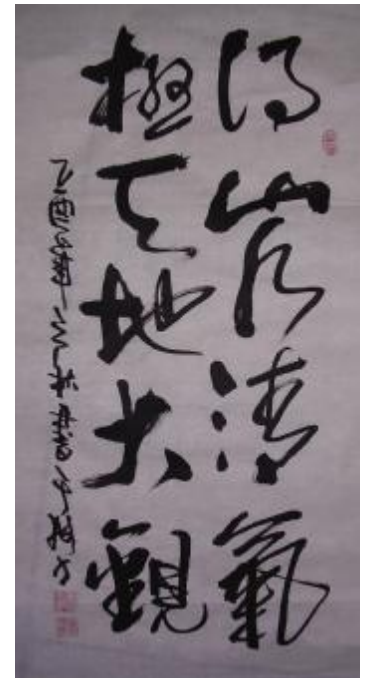 得山水清氣
極天地大觀
乙酉